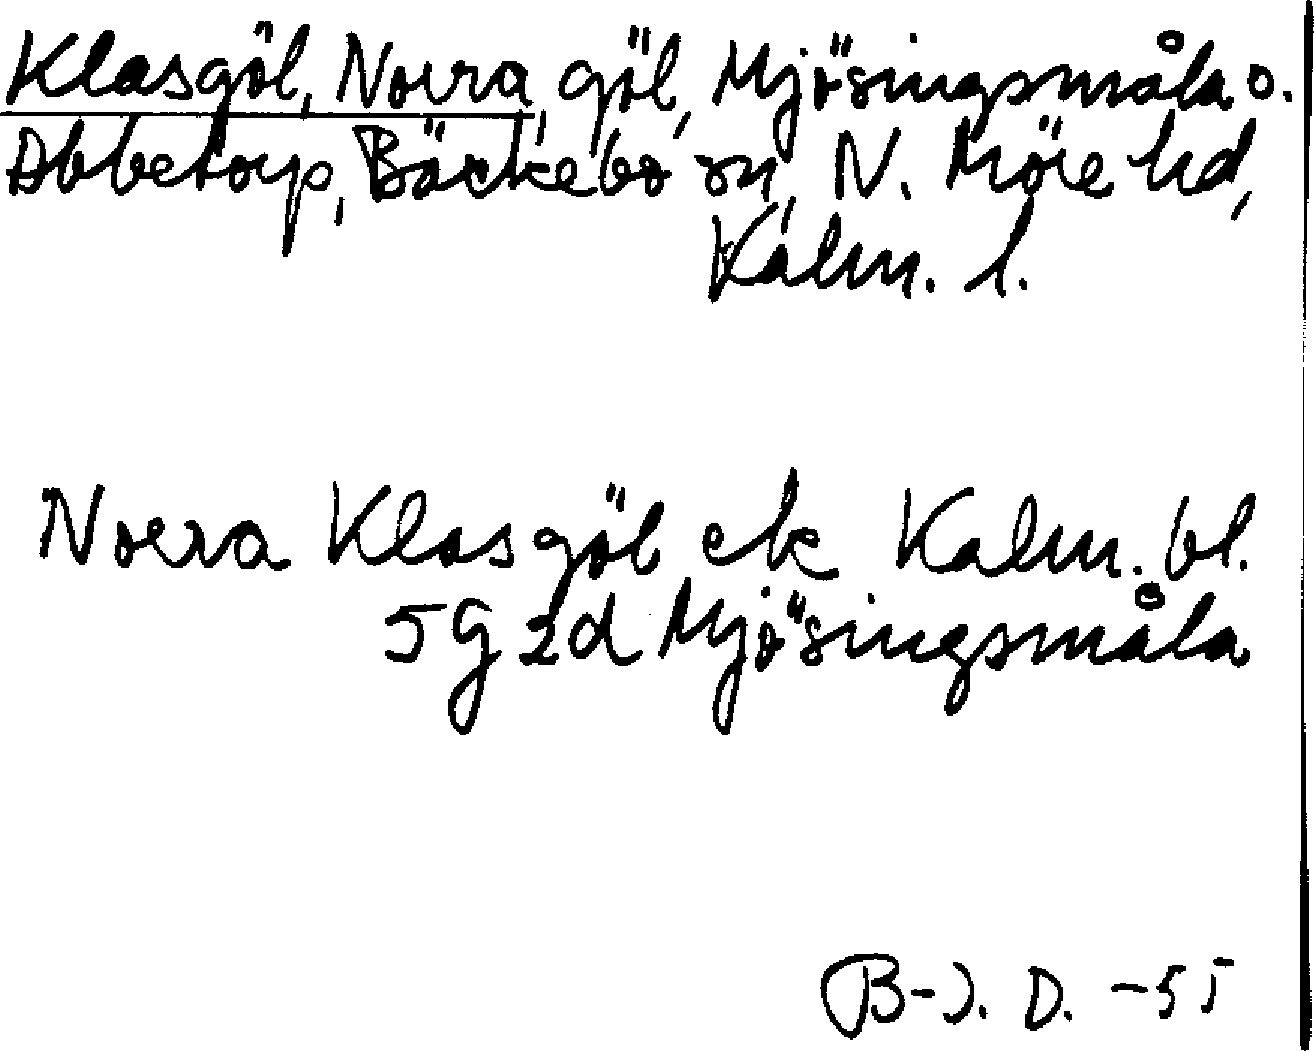 Klasgöl, Norra, göl, Mjösingsmåla o.
Abbetorp, Bäckebo sn, N. Möre hd,
Kalm. l.
Norra Klasgöl ek Kalm. bl.
5G 2d Mjösingsmåla
B-J. D. -55